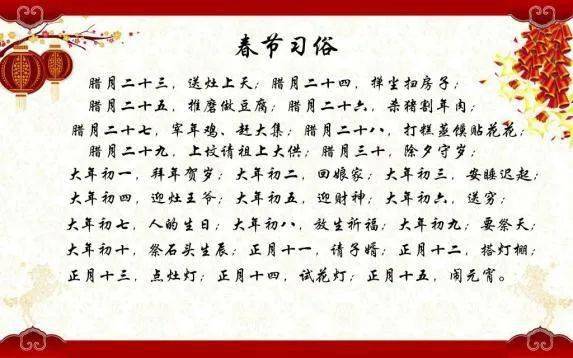 春节习俗
腊月二十三，送灶上天；腊月二十四，掸尘扫房子；
腊月二十五，推磨做豆腐；腊月二十六，杀猪割年肉；
腊月二十七，宰年鸡、赶大集；腊月二十八，打糕蒸馍贴花花；
腊月二十九，上坟请祖上大供；腊月三十，除夕守岁；
大年初一，拜年贺岁；大年初二，回娘家；大年初三，安睡迟起；
大年初四，迎灶王爷；大年初五，迎财神；大年初六，送穷；
大年初七，人的生日；大年初八，放生祈福；大年初九；要祭天；
大年初十，祭石头生辰；正月十一，请子婿；正月十二，搭灯棚；
正月十三，点灶灯；正月十四，试花灯；正月十五，闹元宵。